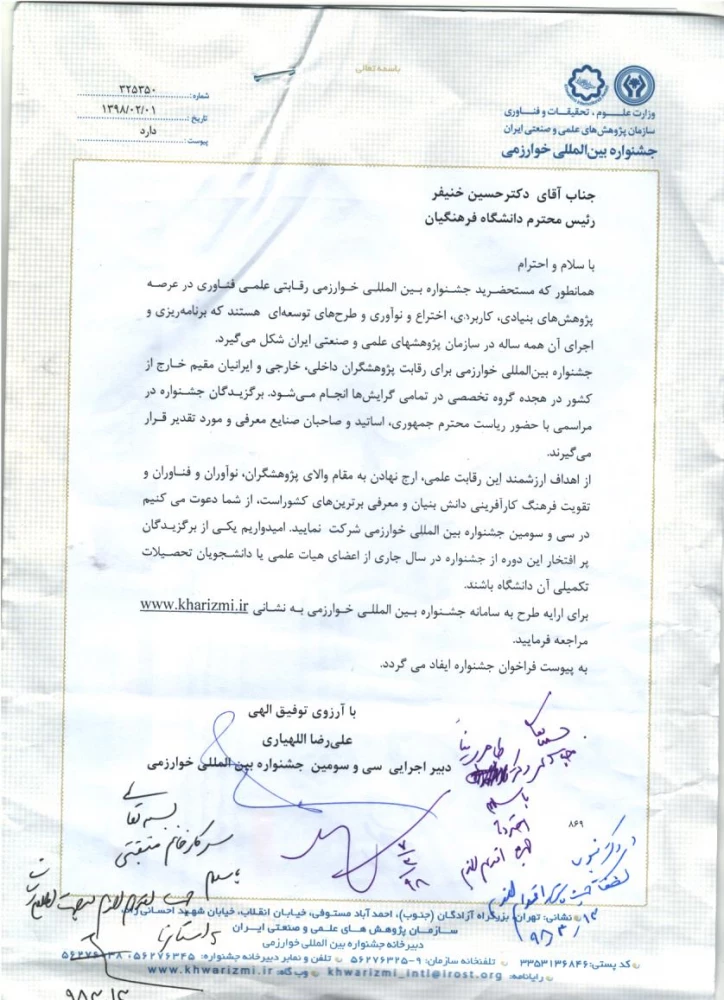 باسمه تعالی
وزارت علـــوم، تحقیقـات و فنـاوری
سازمان پژوهش‌های علمی و صنعتی ایران
جشنواره بین‌المللی خوارزمی
شماره: ۳۲۵۳۵۰
تاریخ: ۱۳۹۸/۰۲/۰۱
پیوست: دارد
جناب آقای دکترحسین خنیفر
رئیس محترم دانشگاه فرهنگیان
با سلام و احترام
همانطور که مستحضرید جشنواره بین المللی خوارزمی رقابتی علمی فناوری در عرصه
پژوهش‌های بنیادی، کاربردی، اختراع و نوآوری و طرح‌های توسعه‌ای هستند که برنامه‌ریزی و
اجرای آن همه ساله در سازمان پژوهشهای علمی و صنعتی ایران شکل می‌گیرد.
جشنواره بین‌المللی خوارزمی برای رقابت پژوهشگران داخلی، خارجی و ایرانیان مقیم خارج از
کشور در هجده گروه تخصصی در تمامی گرایش‌ها انجام می‌شود. برگزیدگان جشنواره در
مراسمی با حضور ریاست محترم جمهوری، اساتید و صاحبان صنایع معرفی و مورد تقدیر قرار
می‌گیرند.
از اهداف ارزشمند این رقابت علمی، ارج نهادن به مقام والای پژوهشگران، نوآوران و فناوران و
تقویت فرهنگ کارآفرینی دانش بنیان و معرفی برترین‌های کشوراست، از شما دعوت می کنیم
در سی و سومین جشنواره بین المللی خوارزمی شرکت نمایید. امیدواریم یکی از برگزیدگان
پر افتخار این دوره از جشنواره در سال جاری از اعضای هیات علمی یا دانشجویان تحصیلات
تکمیلی آن دانشگاه باشند.
برای ارایه طرح به سامانه جشنواره بین‌المللی خوارزمی به نشانی www.kharizmi.ir
مراجعه فرمایید.
به پیوست فراخوان جشنواره ایفاد می گردد.
با آرزوی توفیق الهی
علی‌رضا اللهیاری
دبیر اجرایی سی و سومین جشنواره بین‌المللی خوارزمی
۸۶۹
بسمه تعالی
سرکار خانم
با سلام
نشانی: تهران، بزرگراه آزادگان (جنوب)، احمد آباد مستوفی، خیابان انقلاب، خیابان شهید احسانی راد،
سازمـان پژوهش های علمی و صنعتی ایـران
دبیرخانه جشنواره بین المللی خوارزمی
کد پستی: ۳۳۵۳۱۳۶۸۴۶ تلفنخانه سازمان: ۹-۵۶۲۷۶۳۲۵ تلفن و نمابر دبیرخانه جشنواره: ۵۶۲۷۶۳۴۵،
رایانامه: khwarizmi_intl@irost.org وب گاه: www.khwarizmi.ir